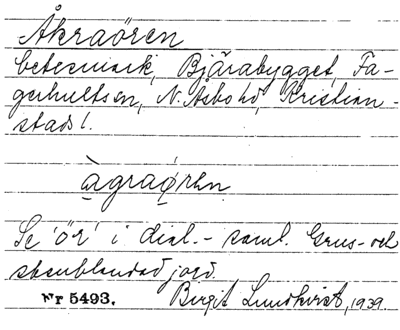 Åkraören
betesmark, Bjärabygget, Fa-
gerhultssn, N. Åsbo hd, Kristian-
stads l.
àgraǿrhn
Se 'ör' i dial.- saml. Grus- och
stenblandad jord.
Nr 5493. Birgit Lundkvist, 1939.